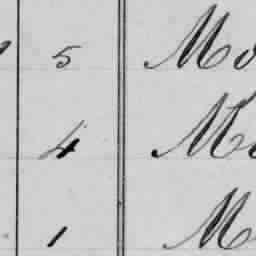 5 Mo
4 M
1 M